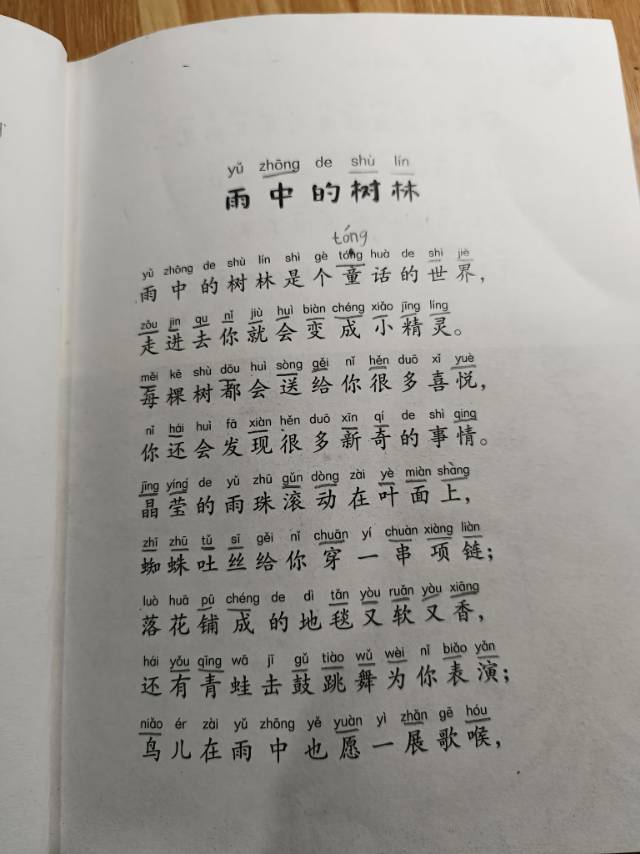 yǔ zhōng de shù lín
雨中的树林
tóng
yǔ zhōng de shù lín shì gè tóng huà de shì jiè
雨中的树林是个童话的世界，
zǒu jìn qu nǐ jiù huì biàn chéng xiǎo jīng líng
走进去你就会变成小精灵。
měi kē shù dōu huì sòng gěi nǐ hěn duō xǐ yuè
每棵树都会送给你很多喜悦，
nǐ hái huì fā xiàn hěn duō xīn qí de shì qing
你还会发现很多新奇的事情。
jīng yíng de yǔ zhū gǔn dòng zài yè miàn shàng
晶莹的雨珠滚动在叶面上，
zhī zhū tǔ sī gěi nǐ chuān yí chuàn xiàng liàn
蜘蛛吐丝给你穿一串项链；
luò huā pū chéng de dì tǎn yòu ruǎn yòu xiāng
落花铺成的地毯又软又香，
hái yǒu qīng wā jī gǔ tiào wǔ wèi nǐ biǎo yǎn
还有青蛙击鼓跳舞为你表演；
niǎo ér zài yǔ zhōng yě yuàn yì zhǎn gē hóu
鸟儿在雨中也愿一展歌喉，